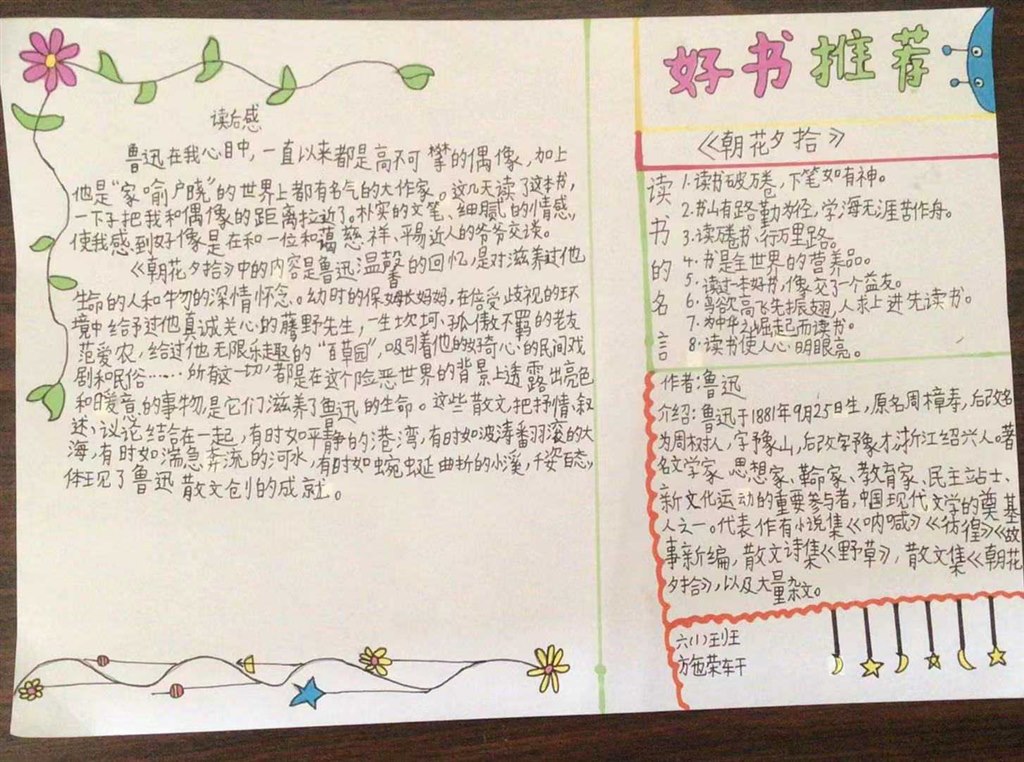 好书推荐
《朝花夕拾》
读后感
鲁迅在我心目中，一直以来都是高不可攀的偶像，加上
他是“家喻户晓”的世界上都有名气的大作家。这几天读了这本书，
一下子把我和偶像的距离拉近了。朴实的文笔、细腻的情感，
使我感到好像是在和一位和蔼慈祥、平易近人的爷爷交谈。
《朝花夕拾》中的内容是鲁迅温馨的回忆，是对滋养过他
生命的人和物的深情怀念。幼时的保姆长妈妈，在倍受歧视的环
境中给予过他真诚关心的藤野先生，一生坎坷、孤傲不羁的老友
范爱农，给过他无限乐趣的“百草园”，吸引着他的好奇心的民间戏
剧和民俗……所有这一切，都是在这个险恶世界的背景上透露出亮色
和暖意的事物，是它们滋养了鲁迅的生命。这些散文，把抒情、叙
述、议论结合在一起，有时如平静的港湾，有时如波涛翻滚的大
海，有时如湍急奔流的河水，有时如蜿蜒曲折的小溪，千姿百态，
体现了鲁迅散文创的成就。
读书的名言
1.读书破万卷，下笔如有神。
2.书山有路勤为径，学海无涯苦作舟。
3.读万卷书，行万里路。
4.书是全世界的营养品。
5.读过一本好书，像交了一个益友。
6.鸟欲高飞先振翅，人求上进先读书。
7.为中华之崛起而读书。
8.读书使人心明眼亮。
作者：鲁迅
介绍：鲁迅于1881年9月25日生，原名周樟寿，后改名
为周树人，字豫山，后改字豫才，浙江绍兴人。著
名文学家、思想家、革命家、教育家、民主站士、
新文化运动的重要参与者，中国现代文学的奠基
人之一。代表作有小说集《呐喊》《彷徨》《故
事新编，散文诗集《野草》，散文集《朝花
夕拾》，以及大量杂文。
六(1)班
方施荣轩